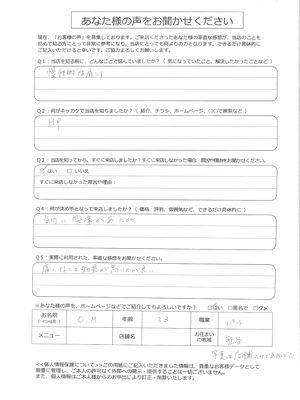 あなた様の声をお聞かせください
現在、「お客様の声」を募集しております。ご来店くださったあなた様の率直な感想が、当店のことを
初めて知る方にとって非常に参考になり、当店にとっても何よりの力となります。できるだけ具体的に
ご記入いただけると幸いです。ご協力よろしくお願いします。
Q1:当店を知る前に、どんなことで悩んでいましたか?(気になっていたこと、解決したかったことなど)
慢性的な肩こり
Q2:何がキッカケで当店を知りましたか?(紹介、チラシ、ホームページ、○○で検索など)
HP
Q3:当店を知ってから、すぐに来店しましたか?すぐに来店しなかった場合、原因や理由をお聞かせください。
はい □いいえ
すぐに来店しなかった原因や理由:
Q4:何が決め手となって来店しましたか?(価格、評判、雰囲気など、できるだけ具体的に)
興味があったから
Q5:実際に利用された、率直な感想をお聞かせください。
※あなた様の声を、ホームページなどでご紹介してもよろしいですか? □はい □匿名で □ダメ
お名前
(イニシャル可)
O.M
年齢
33
職業
メニュー
店舗名
お住まい
の地域
<<個人情報保護について>>この用紙にご記入いただきました情報は、貴重なお客様データとして
厳重に管理し、ご本人の許可なく外部への開示・提供することは一切ございません。
また、個人情報はご本人様からのお申出により訂正・削除いたします。